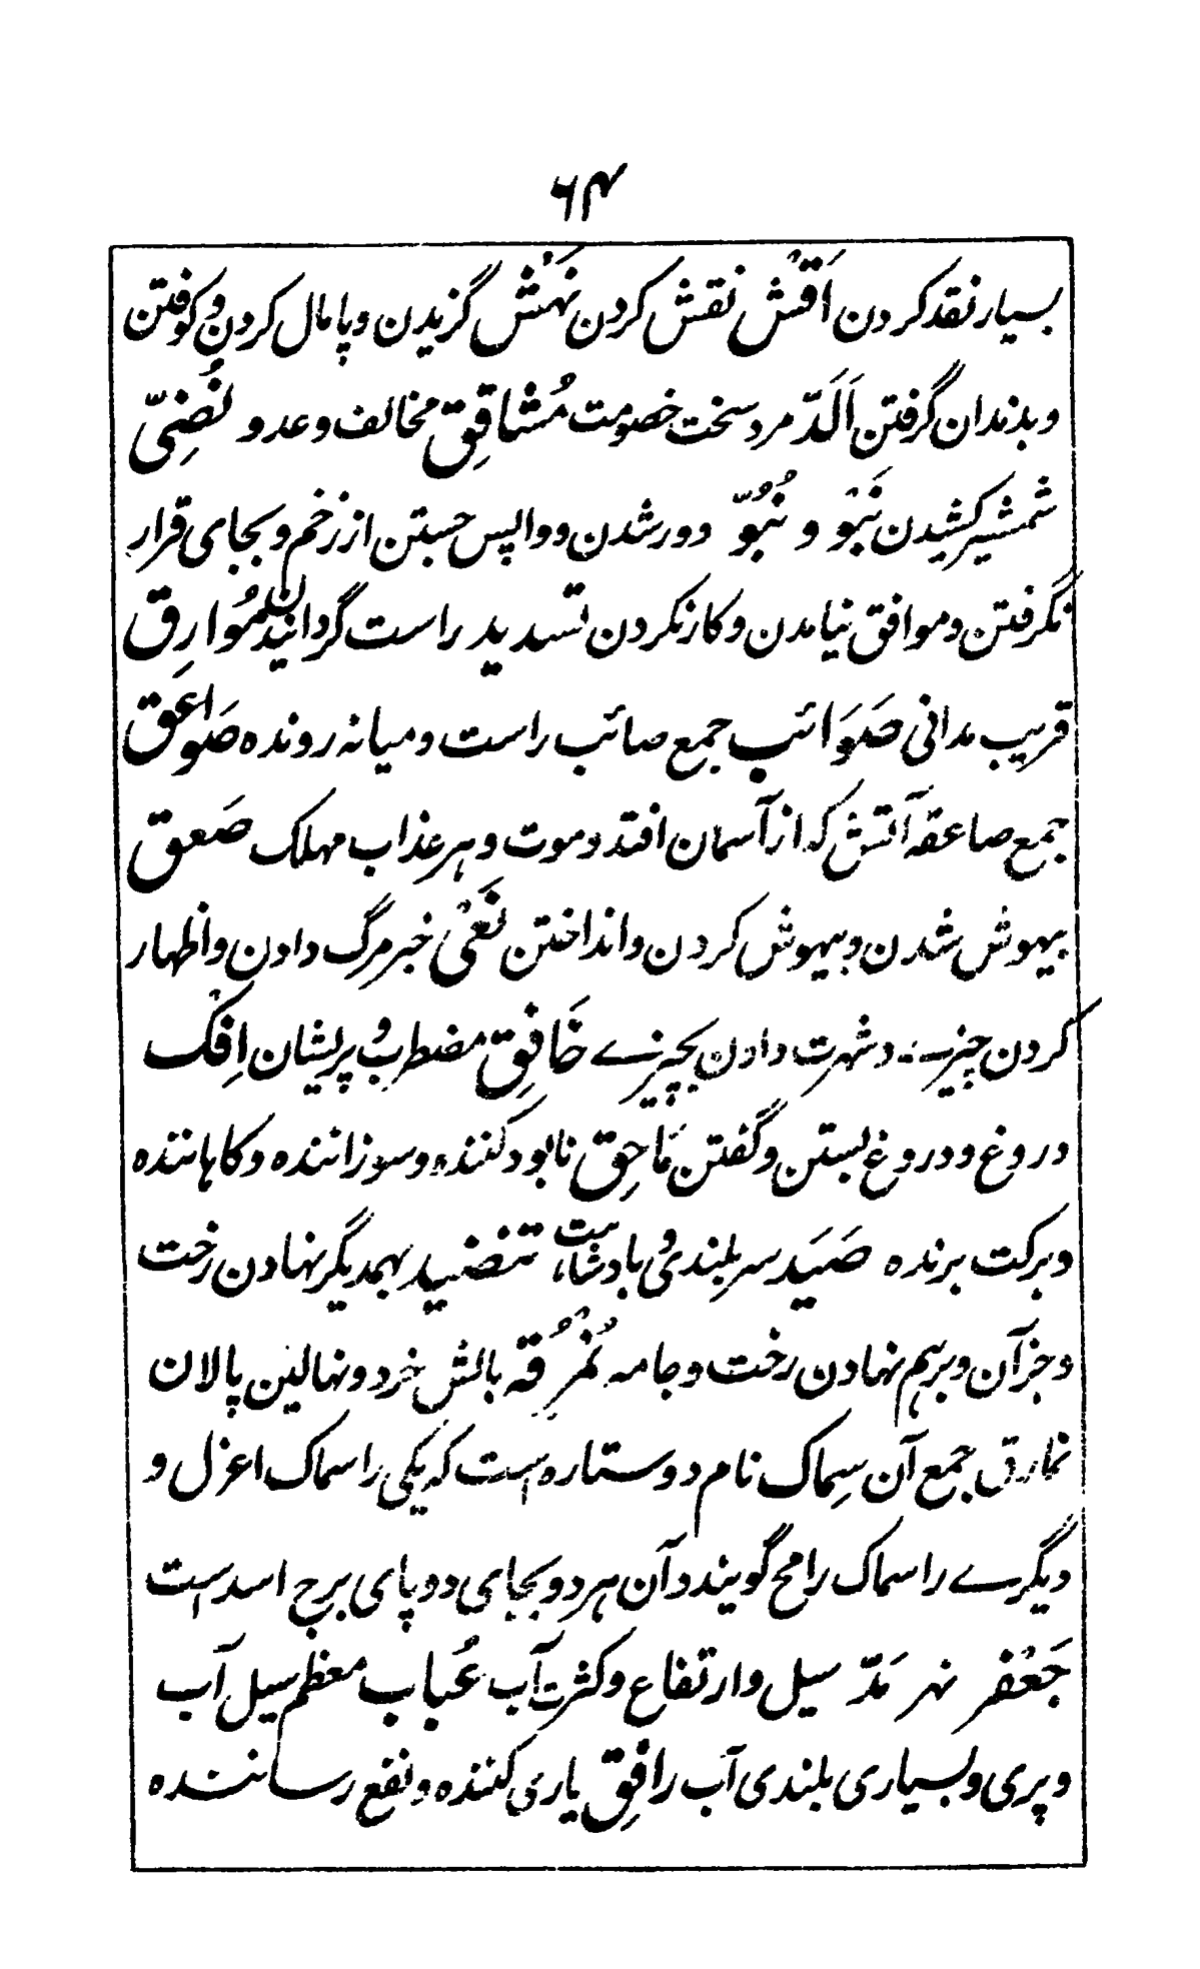 ۶۴
بسیار نقد کردن اَقْش نقش کردن نَهْش گزیدن و پامال کردن و کوفتن
و بدندان گرفتن اَلَدّ مرد سخت خصومت مُشاقِق مخالف و عدو نُضِیّ
شمشیر کشیدن نَبْو و نُبُوّ دور شدن و واپس جستن از زخم و بجای قرار
نگرفتن و موافق نیامدن و کار نکردن تسدید راست گردانیدن مُوارِق
قریب مدانی صَوَائب جمع صائب راست و میانه رونده صَواعِق
جمع صاعقه آتش که از آسمان افتد و موت و هر عذاب مهلک صَعق
بیهوش شدن و بیهوش کردن و انداختن نَعْی خبر مرگ دادن و اظهار
کردن چیزے و شهرت دادن بچیزے خَافِق مضطرب و پریشان اِفْک
دروغ و دروغ بستن و گفتن مَاحِق نابود کننده و سوزاننده و کاهاننده
و برکت برنده صَیَد سر بلندی و بادشاہت تنضید بهمدیگر نهادن رخت
و جز آن و برهم نهادن رخت و جامه نُمْرُقه بالش خرد و نهالین پالان
نمارق جمع آن سِماک نام دو ستاره است که یکی را سماک اعزل و
دیگرے را سماک رامح گویند و آن هر دو بجای دو پای برج اسد است
جَعْفر نهر مَدّ سیل و ارتفاع و کثرت آب عُباب معظم سیل آب
و پری و بسیاری بلندی آب رافِق یاری کننده و نفع رساننده